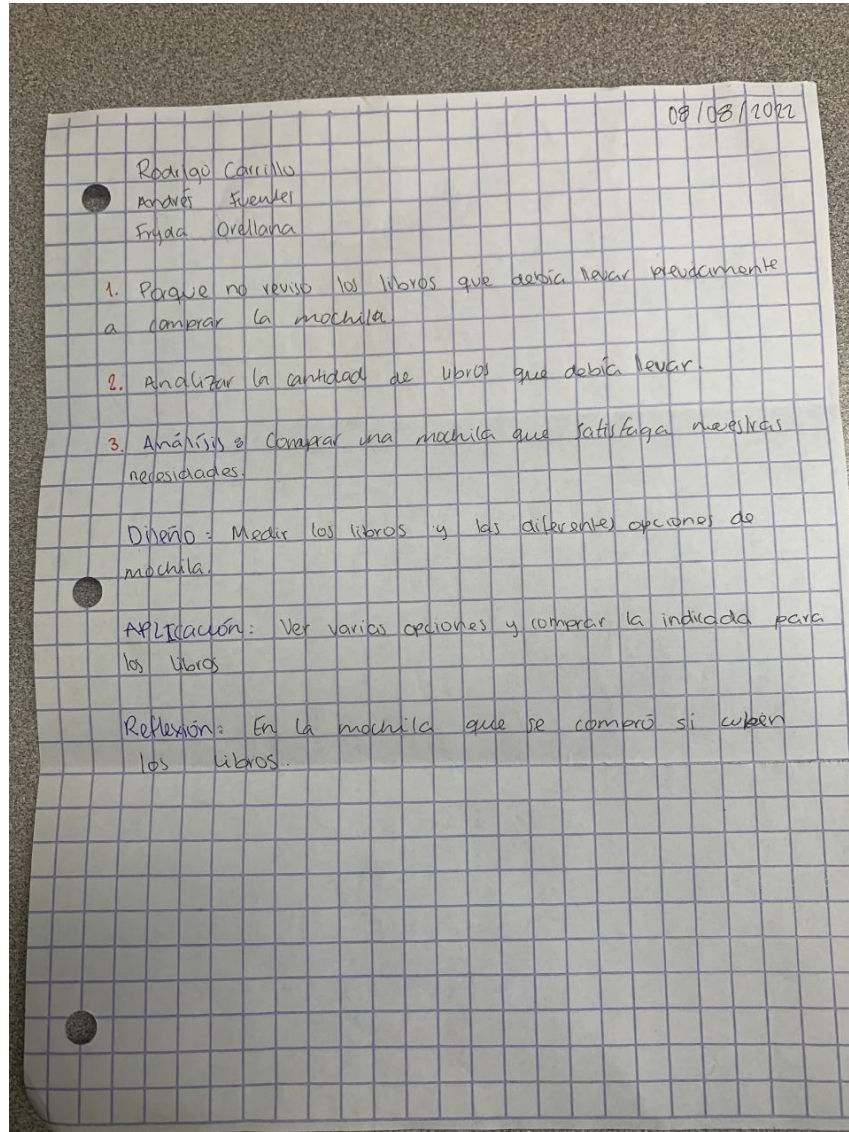 08/08/2022
Rodrigo Carrillo
Andrés Fuentes
Fryda Orellana
1. Porque no revisó los libros que debía llevar previamente
a comprar la mochila.
2. Analizar la cantidad de libros que debía llevar.
3. Análisis: Comprar una mochila que satisfaga nuestras
necesidades.
Diseño: Medir los libros y las diferentes opciones de
mochila.
APLICación: Ver varias opciones y comprar la indicada para
los libros
Reflexión: En la mochila que se compró si cuben
los libros.